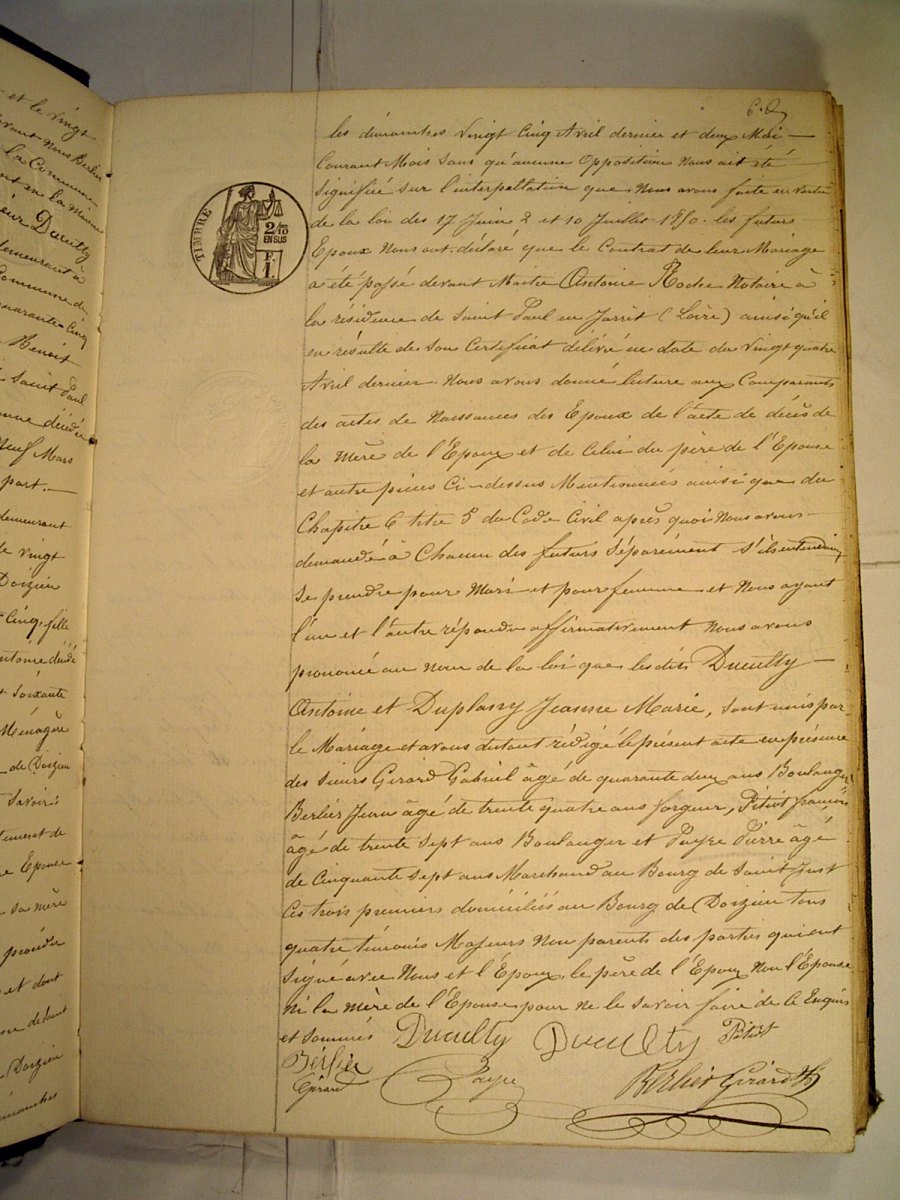 et le vingt
devant Nous Berlier
la Commune
en la Maison
Ducultty
demeurant à
Commune de
quarante-Cinq
Benoit
Saint Paul
décédée
Neuf Mars
part.
demeurant
vingt
Doizieu
Cinq, fille
Antoine décédé
Soixante
Ménagère
de Doizieu
Savoir:
de
Epouse
sa mère
procéder
et dont
Doizieu
TIMBRE
2/10
EN SUS
F.
1.
les dimanches Vingt Cinq Avril dernier et deux Mai
Courant Mois Sans qu'aucune Opposition Nous ait été
Signifiée sur l'interpellation que Nous avons faite en vertu
de la loi des 17 Juin & et 10 Juillet 1850. les futurs
Epoux Nous ont déclaré que le Contrat de leur Mariage
a été passé devant Maitre Antoine Roche Notaire à
la résidence de Saint Paul en Jarrêt (Loire) ainsi qu'il
en résulte de son Certificat délivré en date du Vingt quatre
Avril dernier. Nous avons donné lecture aux Comparants
des actes de Naissances des Epoux de l'acte de décès de
la Mère de l'Epoux et de Celui du père de l'Epouse
et autre pièces Ci-dessus Mentionnées ainsi que du
Chapitre 6 titre 5 du Code Civil après quoi Nous avons
demandé à Chacun des futurs Séparément S'ils entendaient
Se prendre pour Mari et pour femme et Nous ayant
l'un et l'autre répondu affirmativement Nous avons
prononcé au Nom de la loi que lesdits Ducultty
Antoine et Duplany Jeanne Marie, sont unis par
le Mariage et avons du tout rédigé le présent acte en présence
des Sieurs Girard Gabriel âgé de quarante deux ans Boulanger
Berlier Jean âgé de trente quatre ans forgeur, Pitiot françois
âgé de trente Sept ans Boulanger et Payre Pierre âgé
de Cinquante Sept ans Marchand au Bourg de Saint Just
Ces trois premiers domiciliés au Bourg de Doizieu tous
quatre témoins Majeurs Non parents des parties qui ont
Signé avec Nous et l'Epoux, le père de l'Epoux Non l'Epouse
Ni la Mère de l'Epouse pour ne le Savoir faire de Ce Enquis
et Sommés Ducultty Ducultty Pitiot
Berlier
Girard Payre Berlier Girard